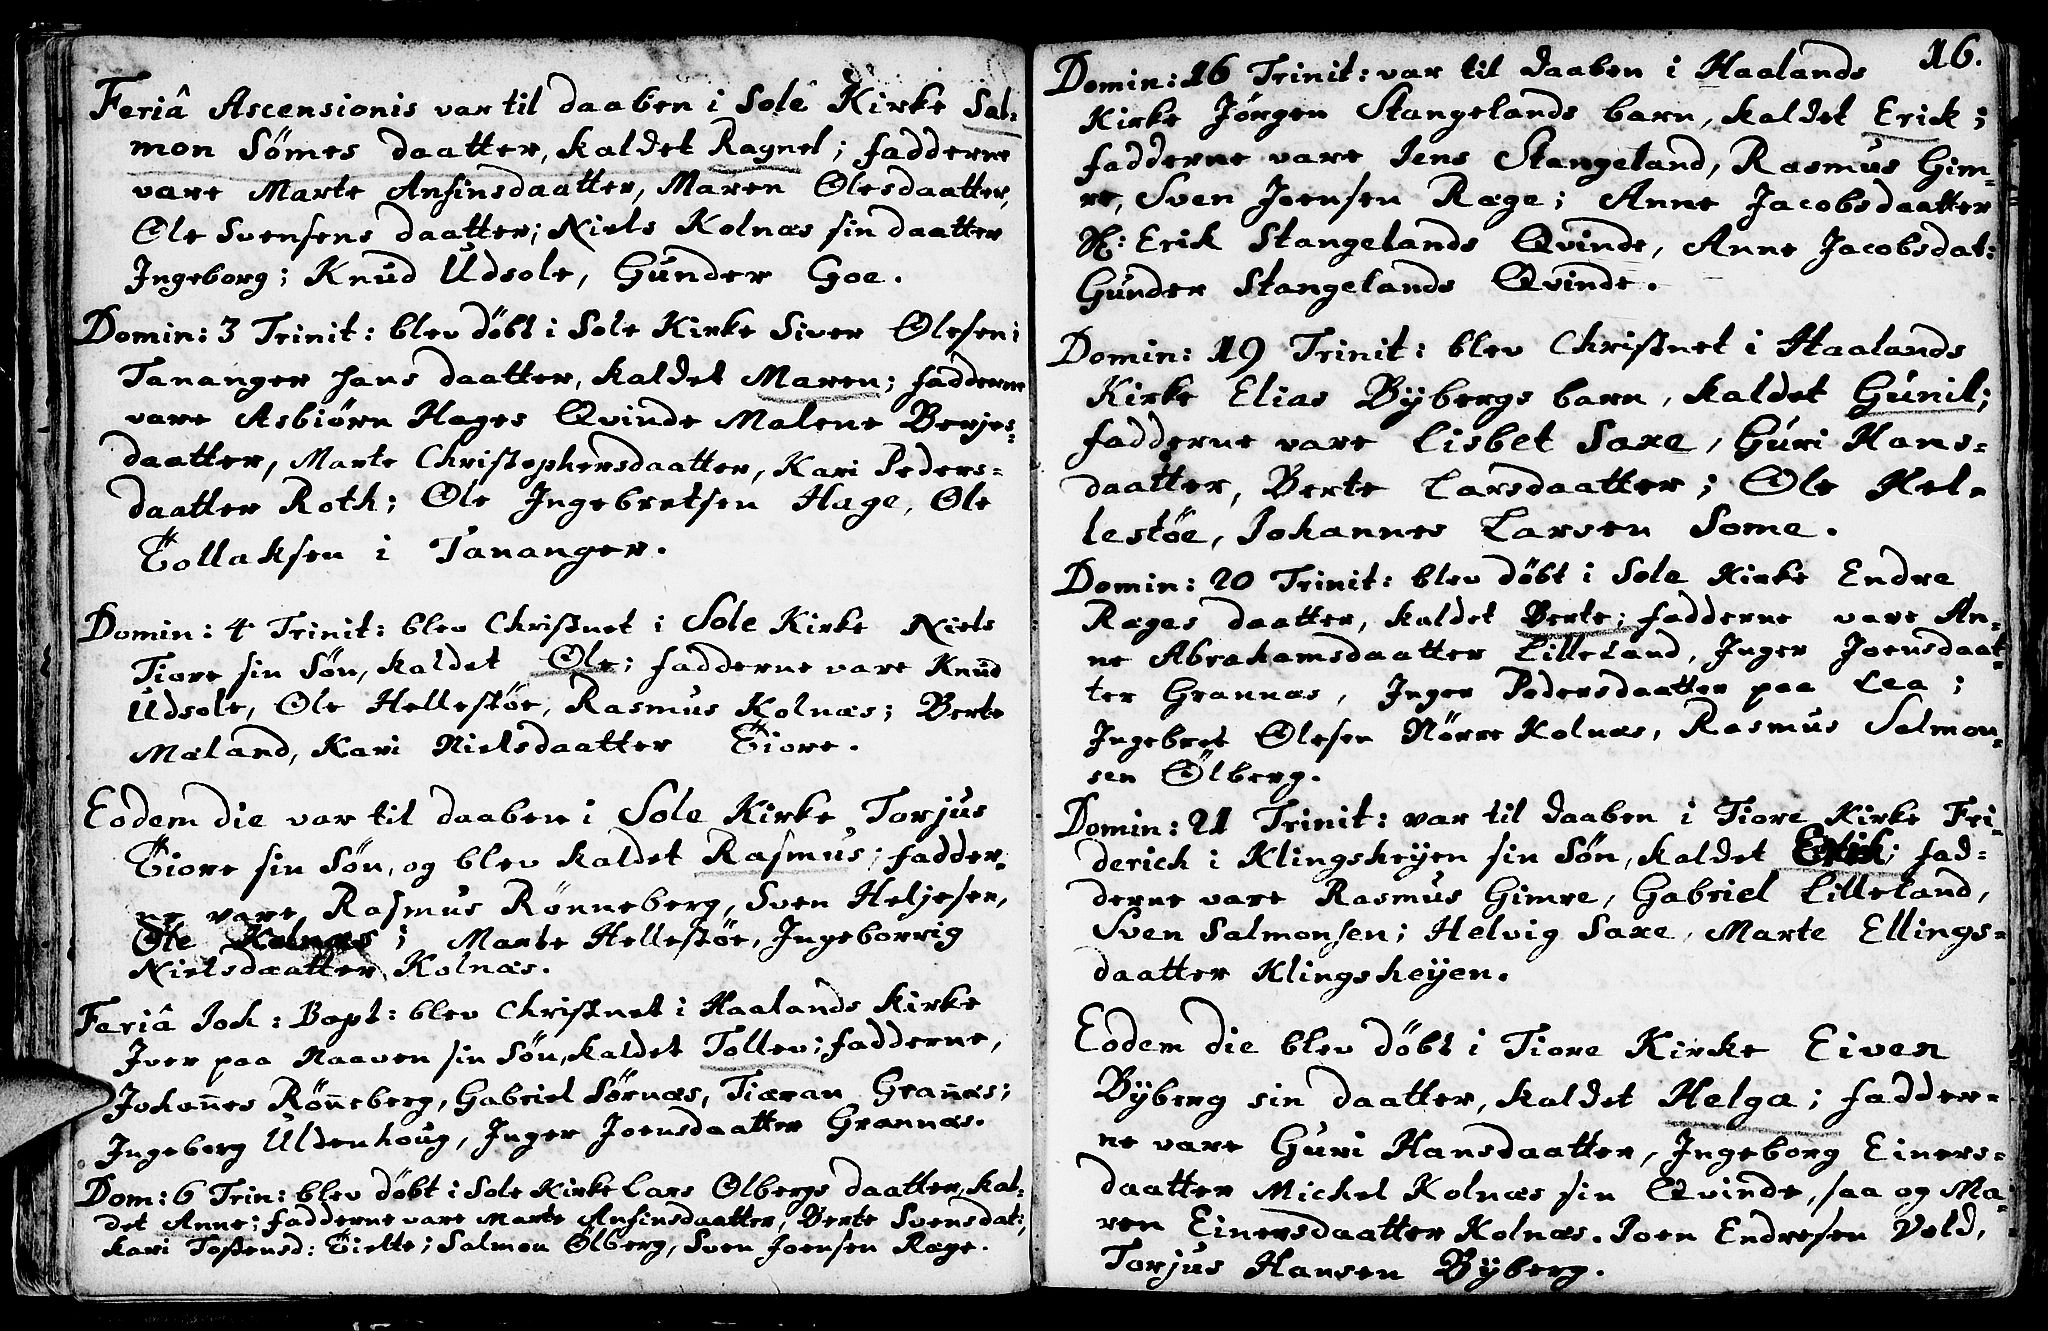 Feriâ Ascensionis var til daaben i Sole Kirke Sal-
mon Sömes daatter, kaldet Ragnel; fadderne
vare Marte Ansinsdaatter, Maren Olesdaatter,
Ole Svensens daatter; Niels Kolnæs sin daatter
Ingeborg; Knud Udsole, Gunder Goe.
Domin: 3 Trinit: blev döbt i Sole Kirke Siver Olesen i
Tananger hans daatter, kaldet Maren; fadderne
vare Asbiörn Hages Qvinde Malene Berjes-
daatter, Marte Christophersdaatter, Kari Peders-
daatter Roth; Ole Ingebretsen Hage, Ole
Tollaksen i Tananger.
Domin: 4 Trinit: blev Christnet i Sole Kirke Niels
Tiore sin Sön, kaldet Ole; fadderne vare Knud
Udsole, Ole Hellestöe, Rasmus Kolnæs; Berte
Mæland, Kari Nielsdaatter Tiore.
Eodem die var til daaben i Sole Kirke Torjus
Tiore sin Sön, og blev kaldet Rasmus; fadder-
ne vare Rasmus Rönneberg, Sven Heljesen,
Ole Kolnæs; Marte Hellestöe, Ingeborrig
Nielsdaatter Kolnæs.
Feriâ Joh: Bapt: blev Christnet i Haalands Kirke
Iver paa Naaven sin Sön, kaldet Tollev; fadderne,
Johan̄es Rön̄eberg, Gabriel Sörnæs, Tiæran Gran̄æs;
Ingeborg Uldenhoug, Inger Joensdaatter Grannæs.
Dom: 6 Trin: blev döbt i Sole Kirke Lars Olbergs daatter, kal-
det Anne; fadderne vare Marte Ansinsdaatter, Berte Svensdat:,
Kari Tostensd: Tielte; Salmon Olberg, Sven Joensen Ræge.
16.
Domin: 16 Trinit: var til daaben i Haalands
Kirke Jörgen Stangelands barn, kaldet Erik;
fadderne vare Jens Stangeland, Rasmus Gim-
re, Sven Joensen Ræge; Anne Jacobsdaatter
Sl: Erik Stangelands Qvinde, Anne Jacobsdat:
Gunder Stangelands Qvinde.
Domin: 19 Trinit: blev Christnet i Haalands
Kirke Elias Bÿbergs barn, kaldet Gunil;
fadderne vare Lisbet Saxe, Guri Hans-
daatter, Berte Larsdaatter; Ole Hel-
lestöe, Johannes Larsen Some.
Domin: 20 Trinit: blev döbt i Sole Kirke Endre
Ræges daatter, kaldet Berte; fadderne vare An-
ne Abrahamsdaatter Lilleland, Inger Joensdaat-
ter Grannæs, Inger Pedersdaatter paa Lea;
Ingebret Olesen Nörre Kolnæs, Rasmus Salmon-
sen Ölberg.
Domin: 21 Trinit: var til daaben i Tiore Kirke Fri-
derich i Klingsheÿen sin Sön, kaldet Erik; fad-
derne vare Rasmus Gimre, Gabriel Lilleland,
Sven Salmonsen; Helvig Saxe, Marte Ellings-
daatter Klingsheÿen.
Eodem die blev döbt i Tiore Kirke Eiven
Bÿberg sin daatter, kaldet Helga; fadder-
ne vare Guri Hansdaatter, Ingeborg Einers-
daatter Michel Kolnæs sin Qvinde, saa og Ma-
ren Einersdaatter Kolnæs. Joen Endresen Vold,
Torjus Hansen Bÿberg.